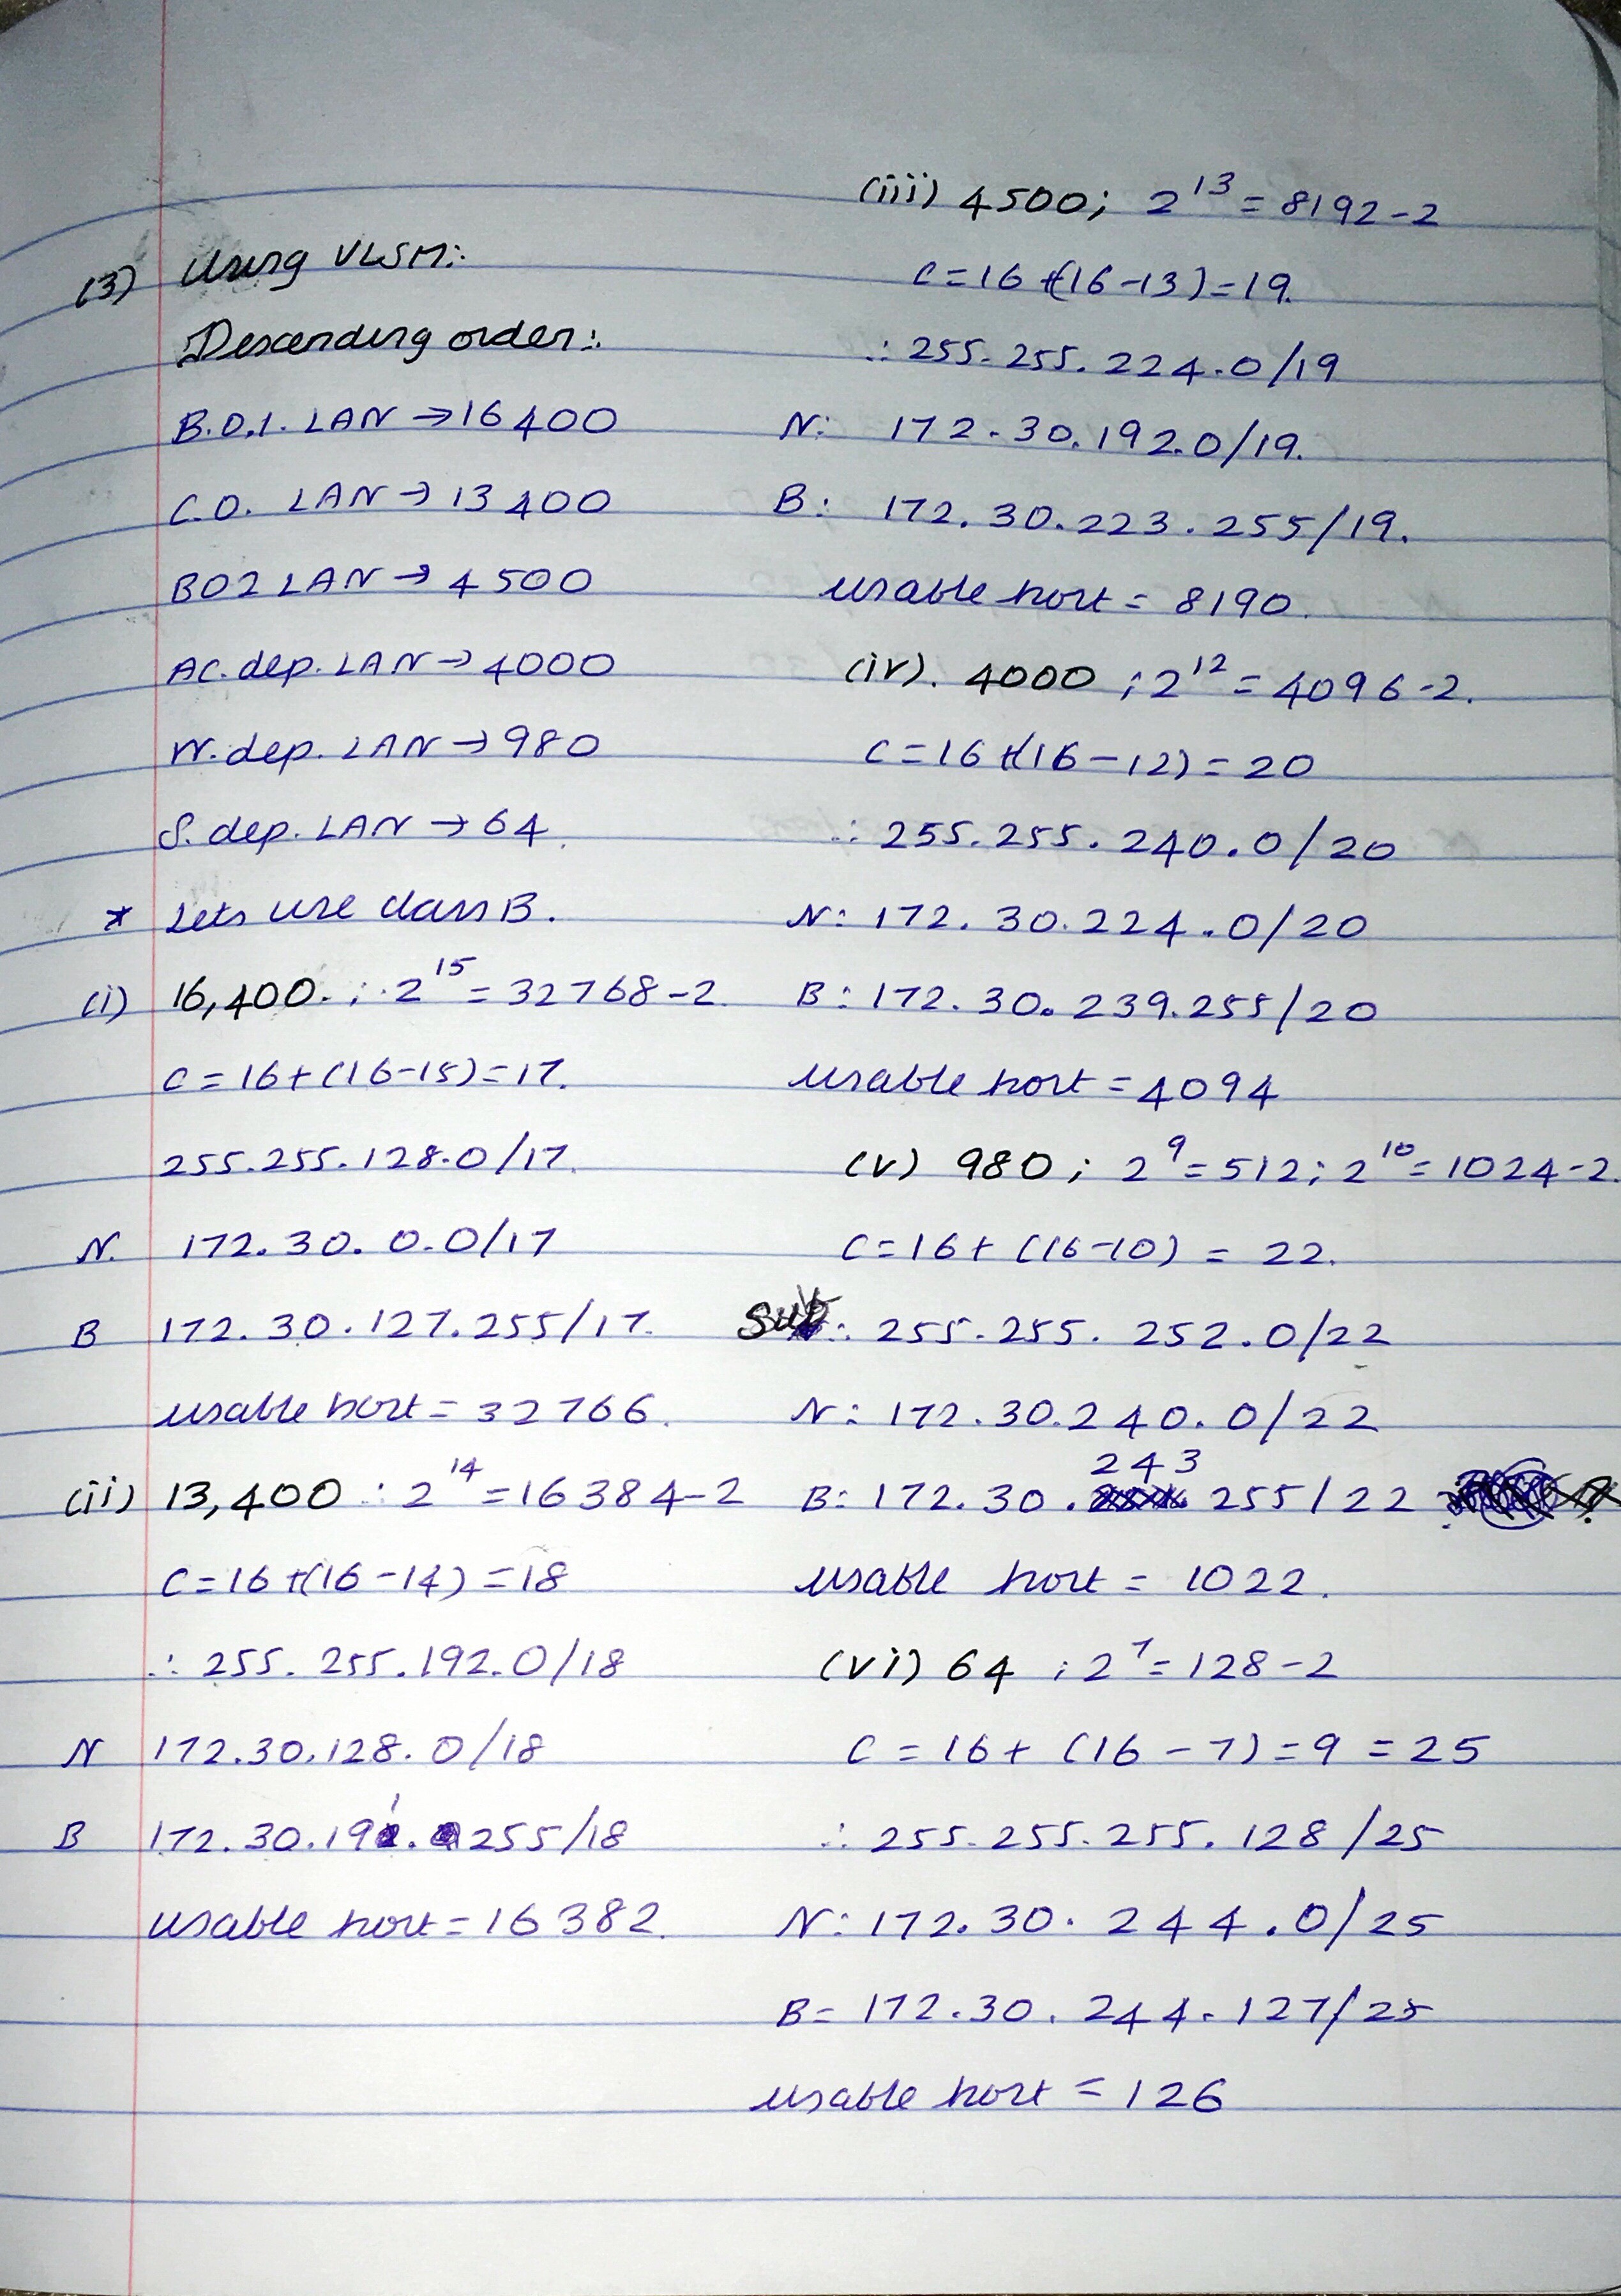 (3) Using VLSM:.
Descending order:.
B.O.1. LAN → 16400
C.O. LAN → 13400
BO2 LAN → 4500
AC. dep. LAN → 4000
W. dep. LAN → 980
S. dep. LAN → 64.
* Lets use class B.
(i) 16,400. ∴ 2^15 = 32768-2
C = 16+(16-15) = 17.
255.255.128.0/17.
N. 172.30.0.0/17
B 172.30.127.255/17.
usable host = 32766.
(ii) 13,400 ∴ 2^14 = 16384-2
C = 16+(16-14) = 18
∴ 255.255.192.0/18
N 172.30.128.0/18
B 172.30.191.255/18
usable host = 16382.
(iii) 4500; 2^13 = 8192-2
C = 16+(16-13) = 19.
∴ 255.255.224.0/19
N: 172.30.192.0/19.
B: 172.30.223.255/19.
usable host = 8190.
(iv). 4000 ; 2^12 = 4096-2.
C = 16+(16-12) = 20
∴ 255.255.240.0/20
N: 172.30.224.0/20
B: 172.30.239.255/20
usable host = 4094
(v) 980; 2^9 = 512; 2^10 = 1024-2.
C = 16+(16-10) = 22.
Sub: 255.255.252.0/22
N: 172.30.240.0/22
B: 172.30.243.255/22
usable host = 1022.
(vi) 64 ; 2^7 = 128-2
C = 16+(16-7) = 9 = 25
∴ 255.255.255.128/25
N: 172.30.244.0/25
B= 172.30.244.127/25
usable host = 126